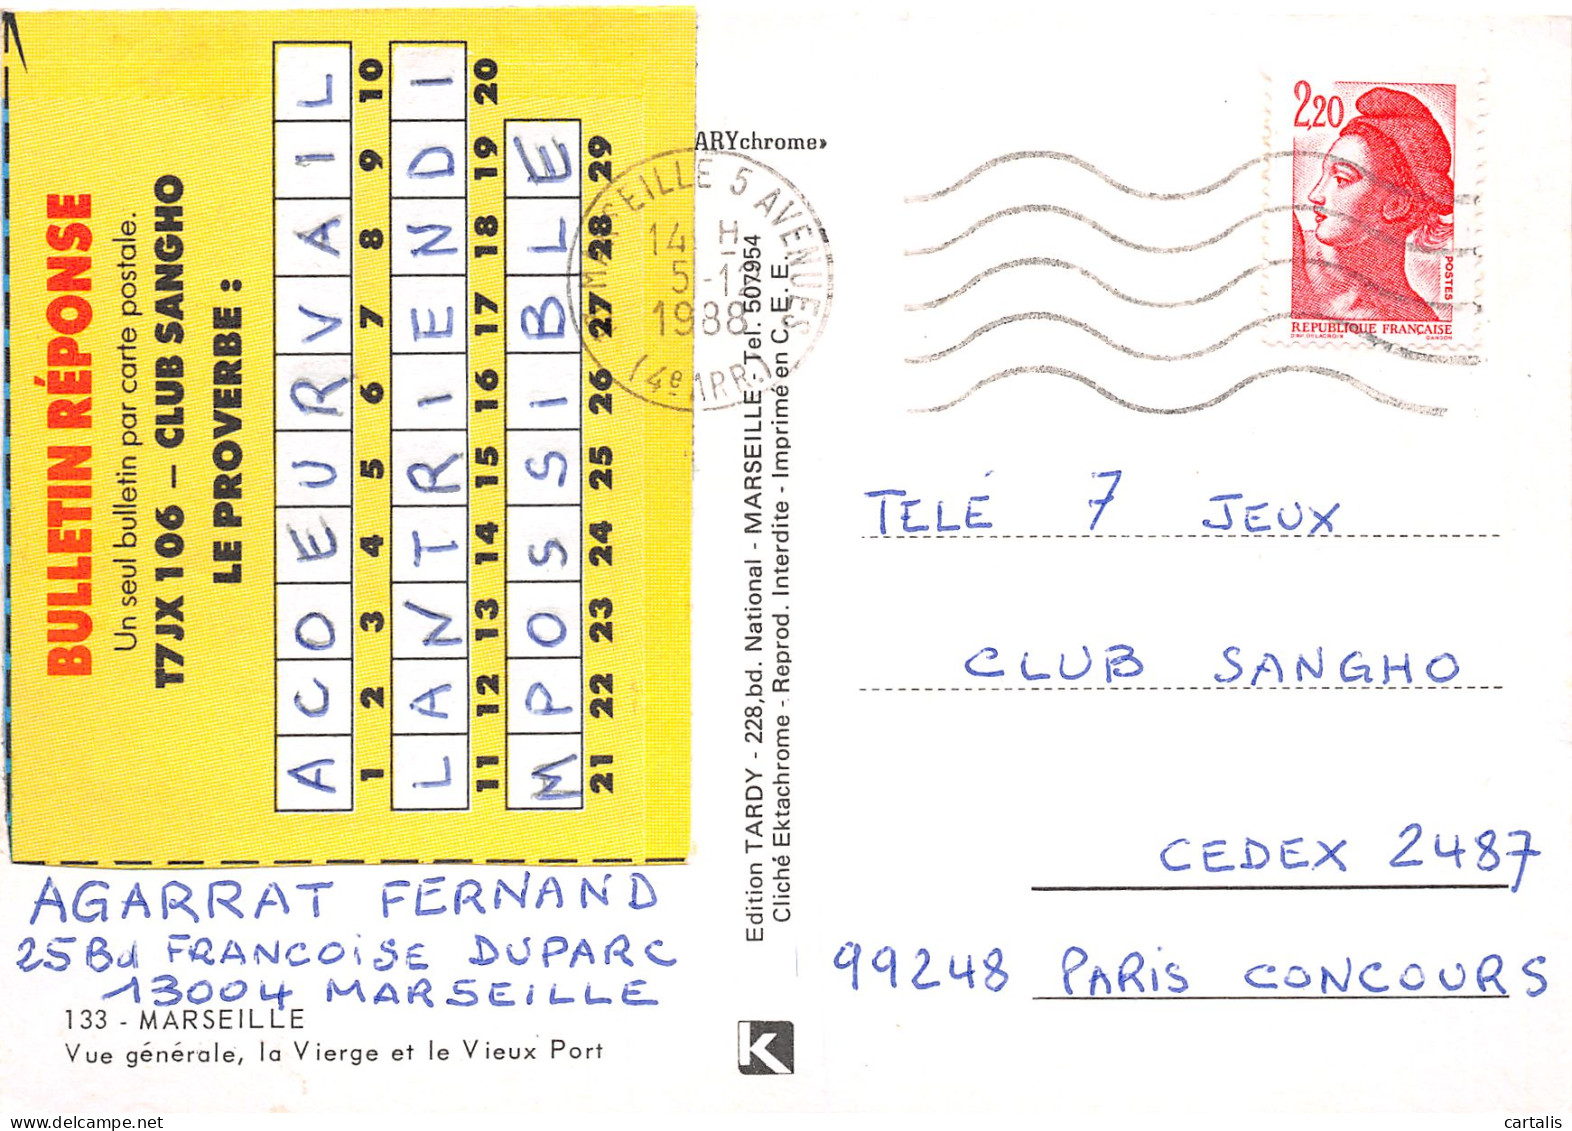 BULLETIN RÉPONSE
Un seul bulletin par carte postale.
T7JX 106 – CLUB SANGHO
LE PROVERBE :
A C O E U R V A I L
1 2 3 4 5 6 7 8 9 10
L A N T R I E N D I
11 12 13 14 15 16 17 18 19 20
M P O S S I B L E
21 22 23 24 25 26 27 28 29
AGARRAT FERNAND
25 Bd FRANCOISE DUPARC
13004 MARSEILLE
133 - MARSEILLE
Vue générale, la Vierge et le Vieux Port
ARYchrome»
MARSEILLE 5 AVENUES
14 H
5-1
1988
(4e ARR.)
Edition TARDY - 228,bd. National - MARSEILLE - Tel. 507954
Cliché Ektachrome - Reprod. Interdite - Imprimé en C. E. E.
K
2,20
POSTES
REPUBLIQUE FRANÇAISE
D'AP. DELACROIX GANDON
TELÉ 7 JEUX
CLUB SANGHO
CEDEX 2487
99248 PARIS CONCOURS
cartalis